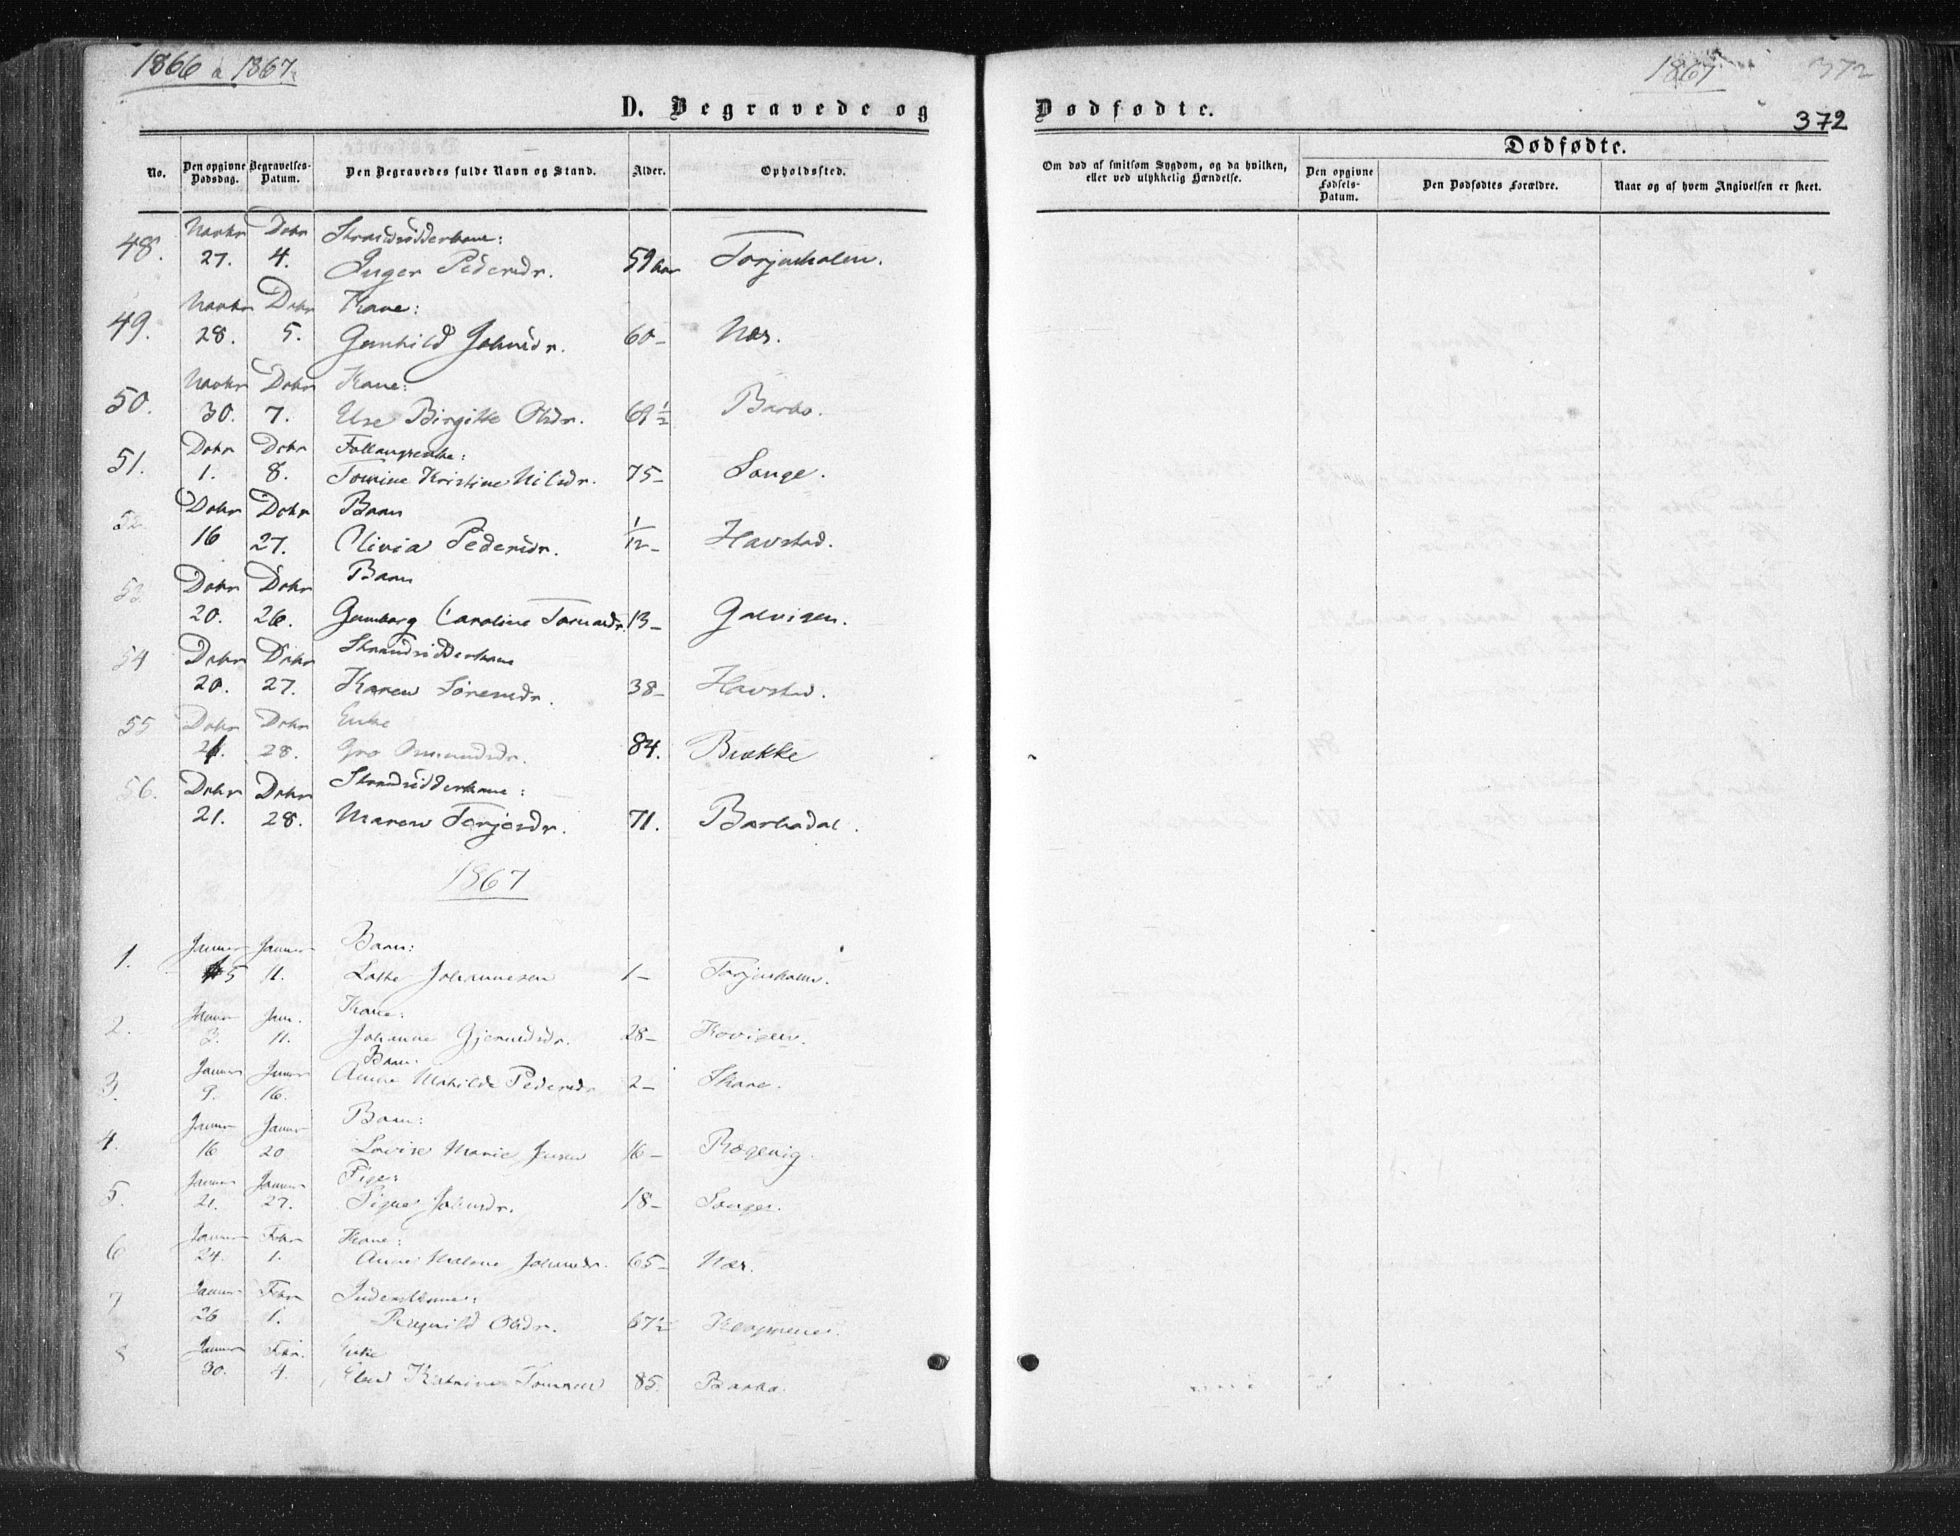 1866 a 1867.
1867
372
D. Begravede og
Dødfødte.
372
No.
Den opgivne Dødsdag.
Begravelses-Datum.
Den Begravedes fulde Navn og Stand.
Alder.
Opholdssted.
Om død af smitsom Sygdom, og da hvilken, eller ved ulykkelig Hændelse.
Dødfødte.
Den opgivne Fødsels-Datum.
Den Dødfødtes Forældre.
Naar og af hvem Angivelsen er skeet.
Novbr Debr Strandsidderkone:
48. 27. 4. Inger Pedersdr. 59 aar Torjusholm.
Novbr Debr Kone:
49. 28. 5. Gunhild Johnsdr. 60- Nær.
Novbr Debr Kone:
50. 30. 7. Else Birgitte Olsdr. 69½ Barbo.
Debr Debr
51. 1. 8. Tomine Kristine Nilsdr. 75- Songe.
Debr Debr Barn
52. 16 27. Olivia Pedersdr. 1/12- Havstad.
Debr Debr Barn
53. 20. 26. Gunborg Caroline 13-
Debr Debr Strandsidderkone
54 20. 27. Karen Sørensdr. 38- Havstad.
Debr Debr Enke
55 21. 28. Gro 84. Brække
Debr Debr Strandsidderkone:
56. 21. 28. Maren Terjesdr. 71. Barbodal.
1867
Januar Januar Barn:
1. 5 11. Johannesen 1- Torjusholm.
Januar Jan. Kone:
2. 3. 11. Johanne 28- Kovigen.
Januar Januar Barn:
3. 9. 16. Anne Mathilde Pedersdr 2- Skare.
Januar Januar Barn:
4. 16 20 Lovise Marie Jensen 16- Rægevig.
Januar Januar Pige:
5. 21. 27. Signe Johnsdr. 18- Songe.
Januar Febr Kone:
6 24. 1. Anne Malene Johnsdr. 65- Nær.
Januar Febr
7 26 1. Ragnild Olsdr. 67½
Januar Febr. Enke
8 30. 4. Elen Katrine 85. Barbo.